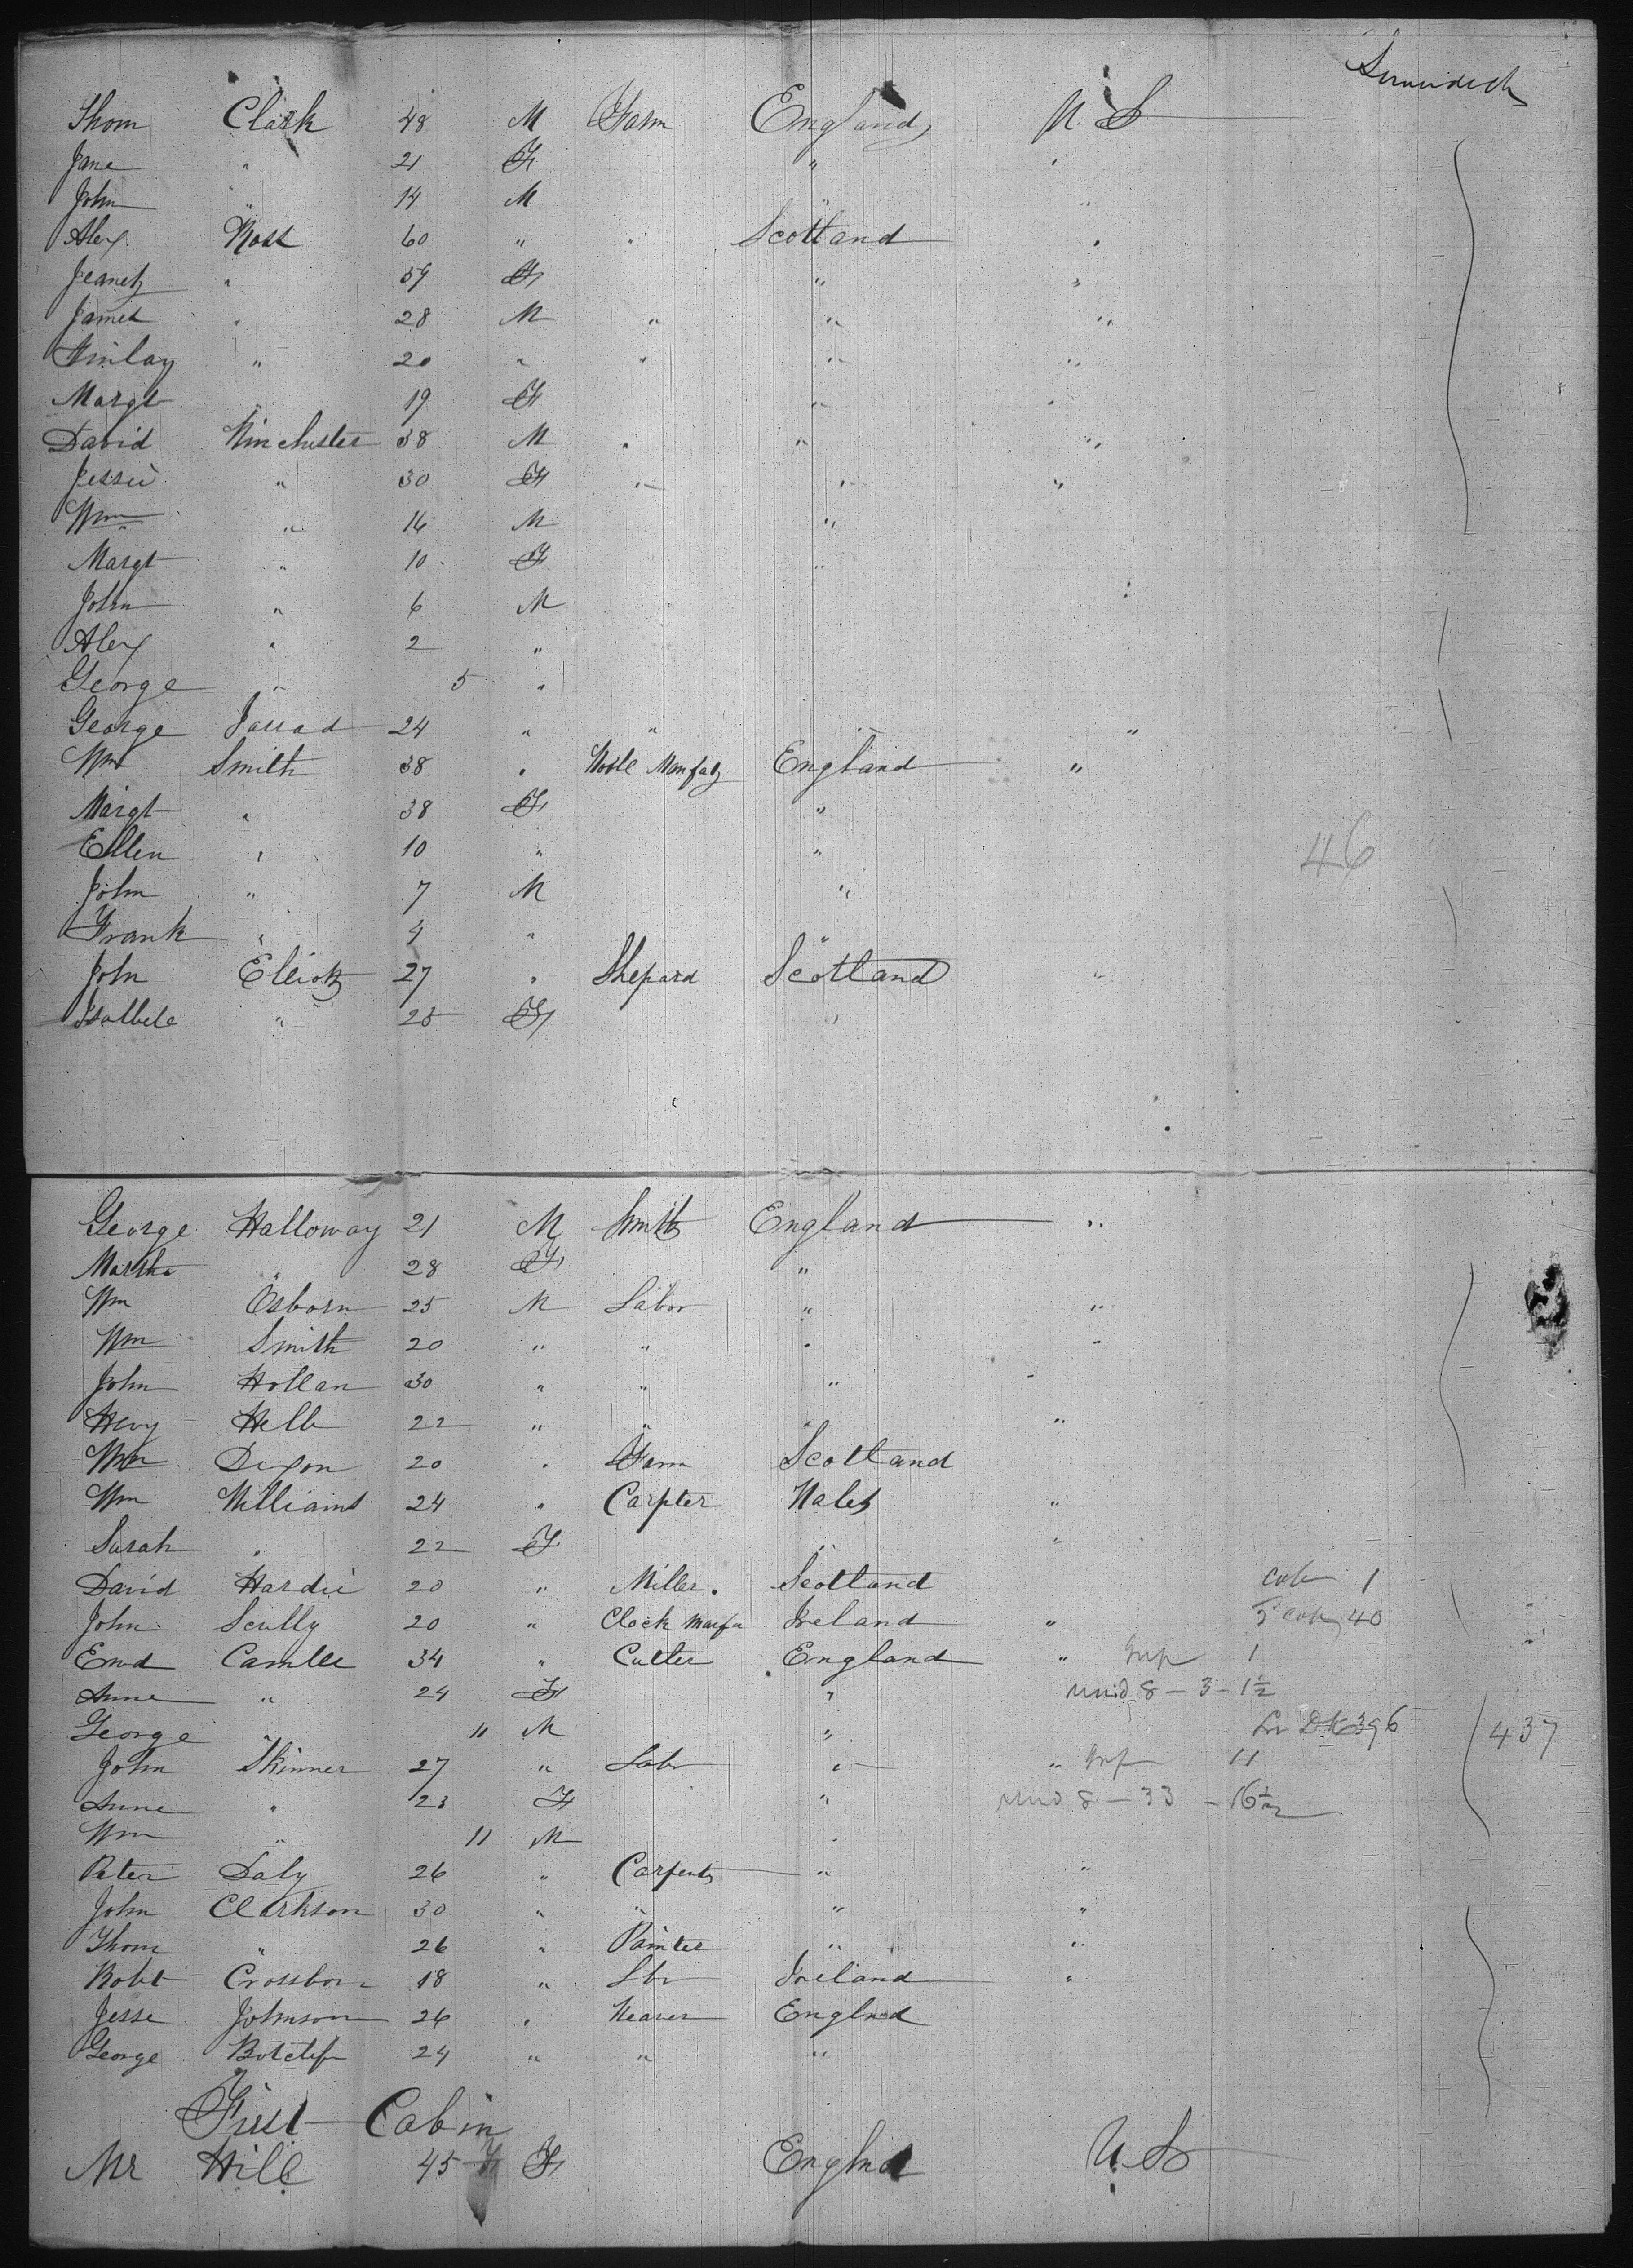 Thom Clark 48 M Farm England U S
Jane " 21 F " "
John " 14 M " "
Alex Ross 60 " " Scotland "
Jeanet " 59 F " "
James " 28 M " " "
Finlay " 20 " " " "
Margt " 19 F " "
David Winchester 38 M " " "
Jessie " 30 F " " "
Wm " 16 M "
Margt " 10 F "
John " 6 M
Alex " 2 "
George " 5 "
George 24 " " " "
Wm Smith 38 " England "
Margt " 38 F "
Ellen " 10 " "
46
John " 7 M "
Frank " 4 "
John Elliott 27 " Shepard Scotland "
Isabbele " 25 F
George Halloway 21 M Smith England "
Martha " 28 F "
Wm Osborn 25 M Labor " "
Wm Smith 20 " " " "
John Hollan 30 " " " "
22 " " " "
Wm Dixon 20 " Farm Scotland
Wm Williams 24 " Carpter Wales "
Sarah " 22 F " "
David Hardie 20 " Miller. Scotland 1
John Scully 20 " Clock Ireland " 40
34 " Cutter England " 1
Anne " 24 F " 8 - 3 - 1½
George " 11 M " 396 437
John Skinner 27 " Labr " " 11
Anne " 23 F " 8 - 33 - 16½
Wm " 11 M "
Peter Daly 26 " Carpent " "
John Clarkson 30 " " " "
Thom " 26 " Painter " "
Robt 18 " Lbr Ireland "
Jesse Johnson 26 " Weaver Englnd
George 24 " " "
First Cabin
Mr Hill 45 F Englnd U.S